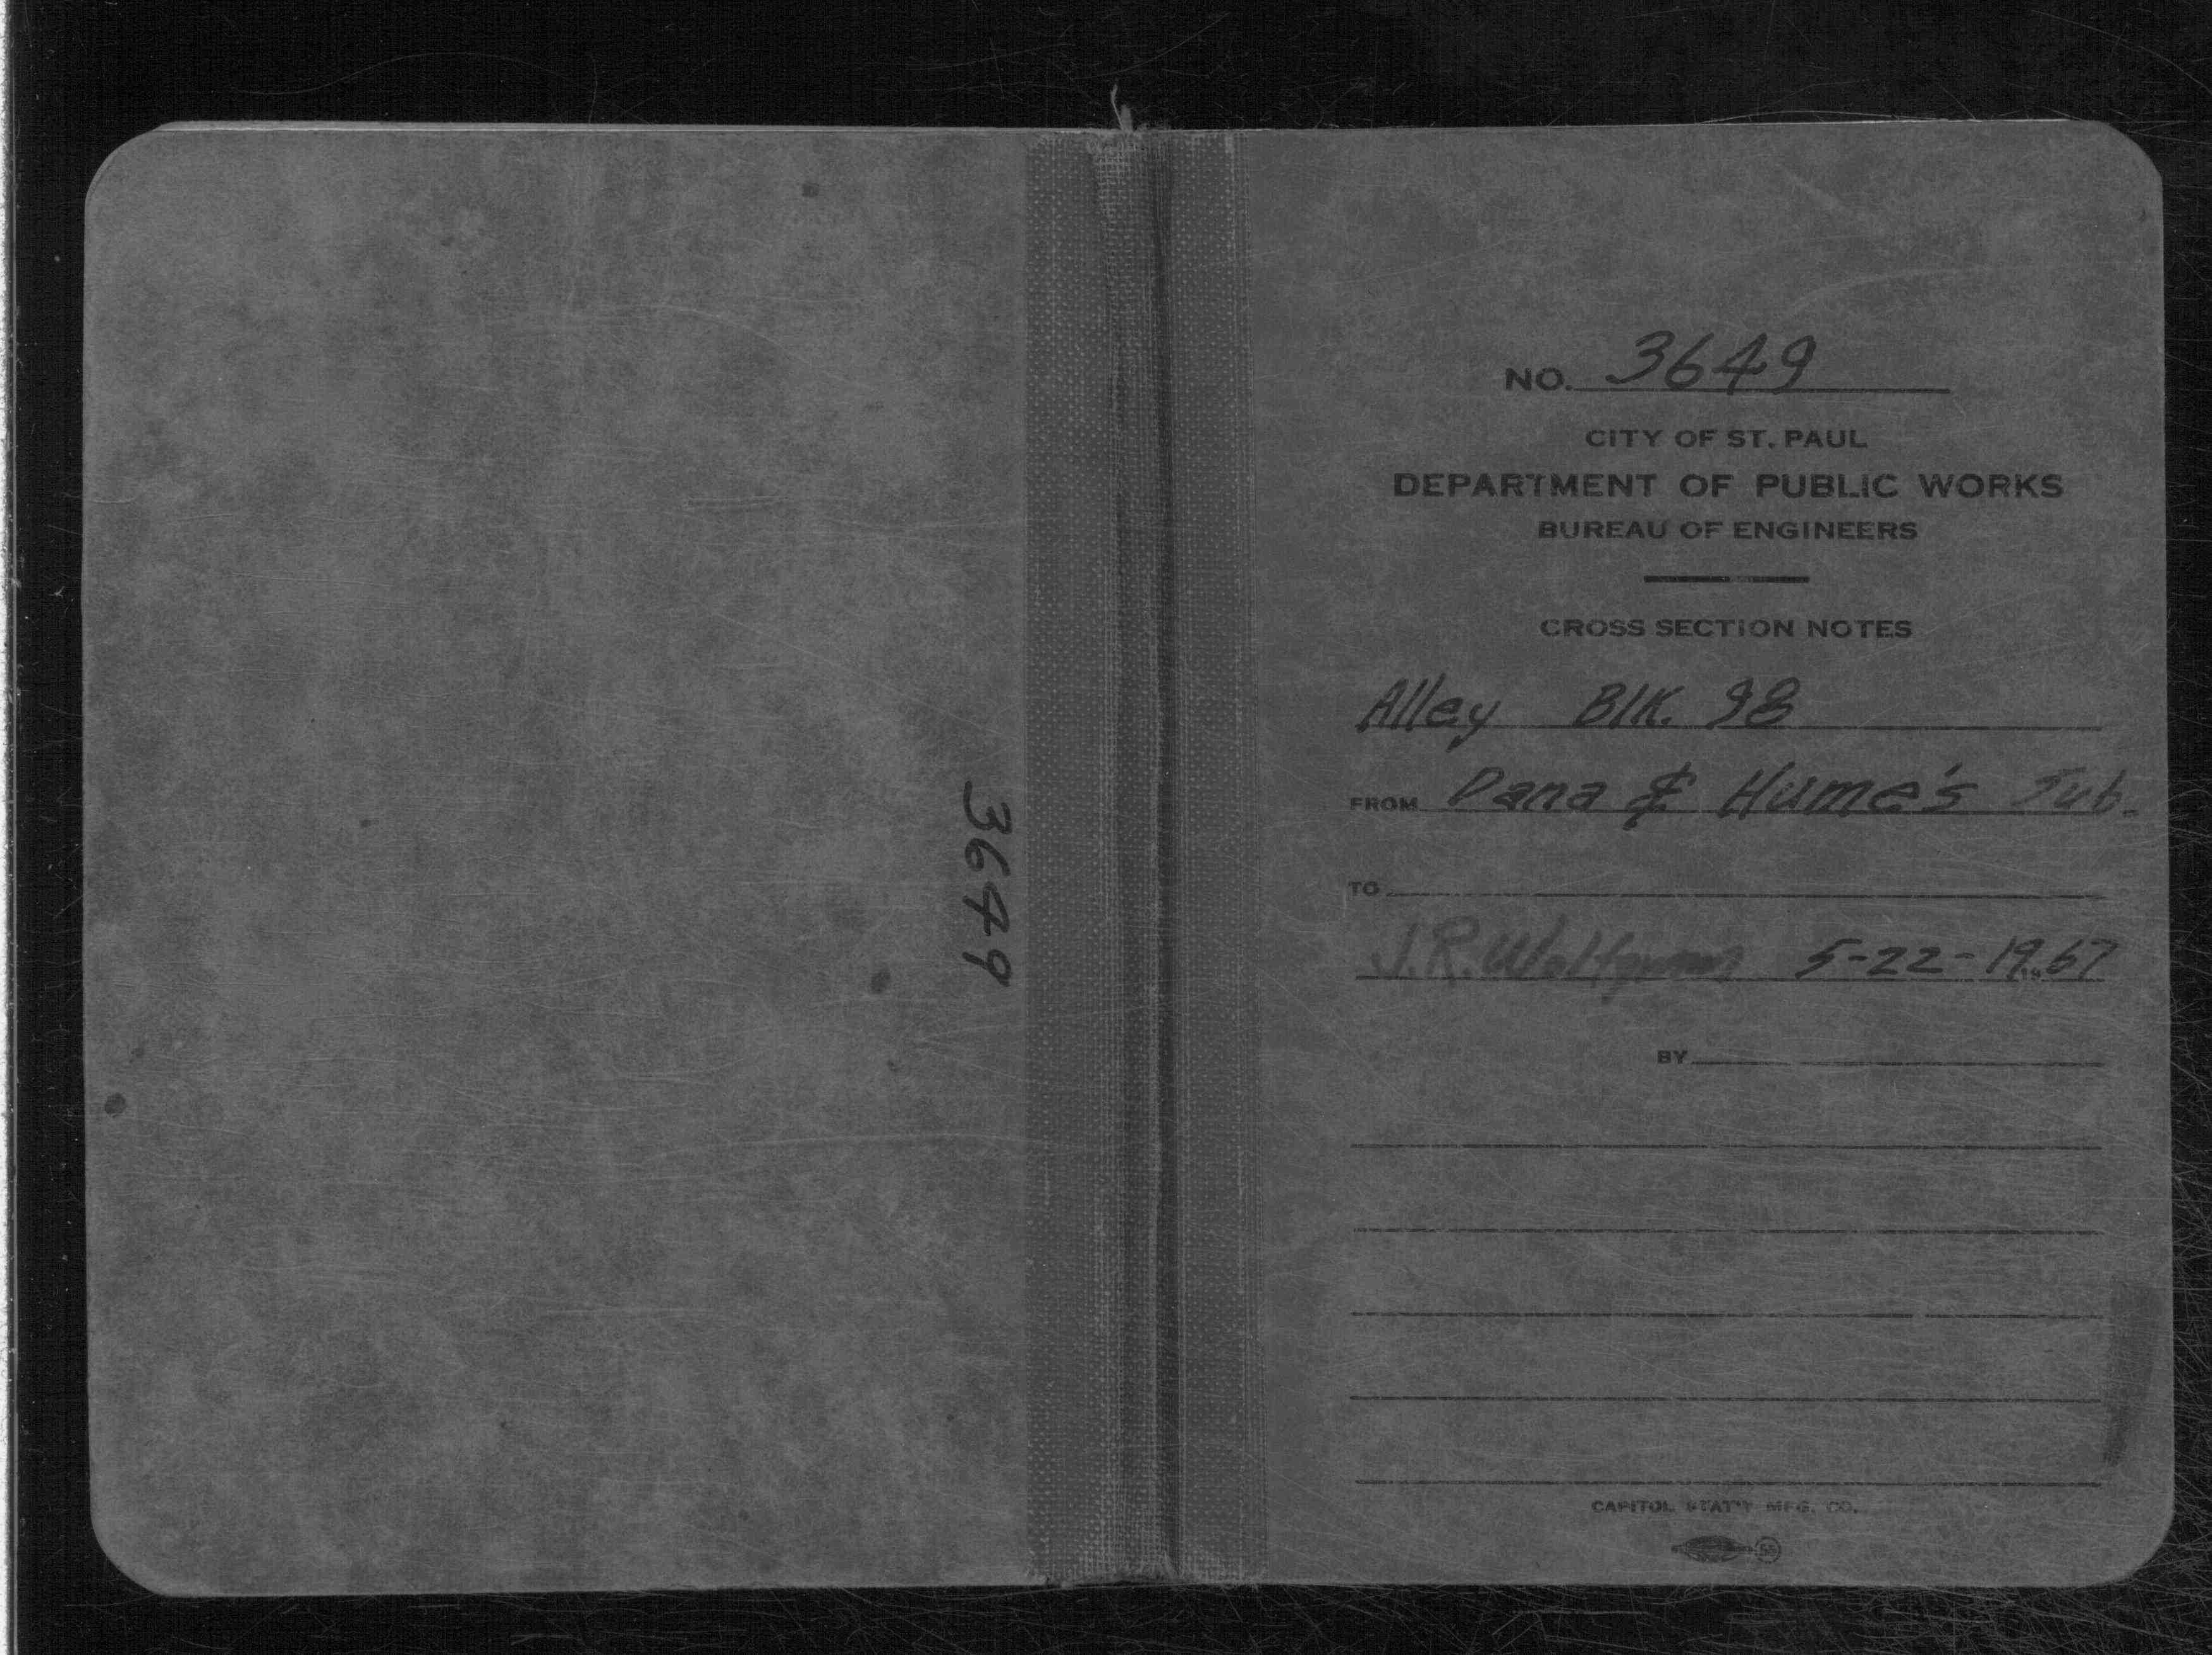 3649
NO. 3649
CITY OF ST. PAUL
DEPARTMENT OF PUBLIC WORKS
BUREAU OF ENGINEERS
CROSS SECTION NOTES
Alley Blk. 98
FROM Dana & Hume's Sub.
TO
J.R. 5-22-1967
BY
CAPITOL STAT'Y MFG. CO.